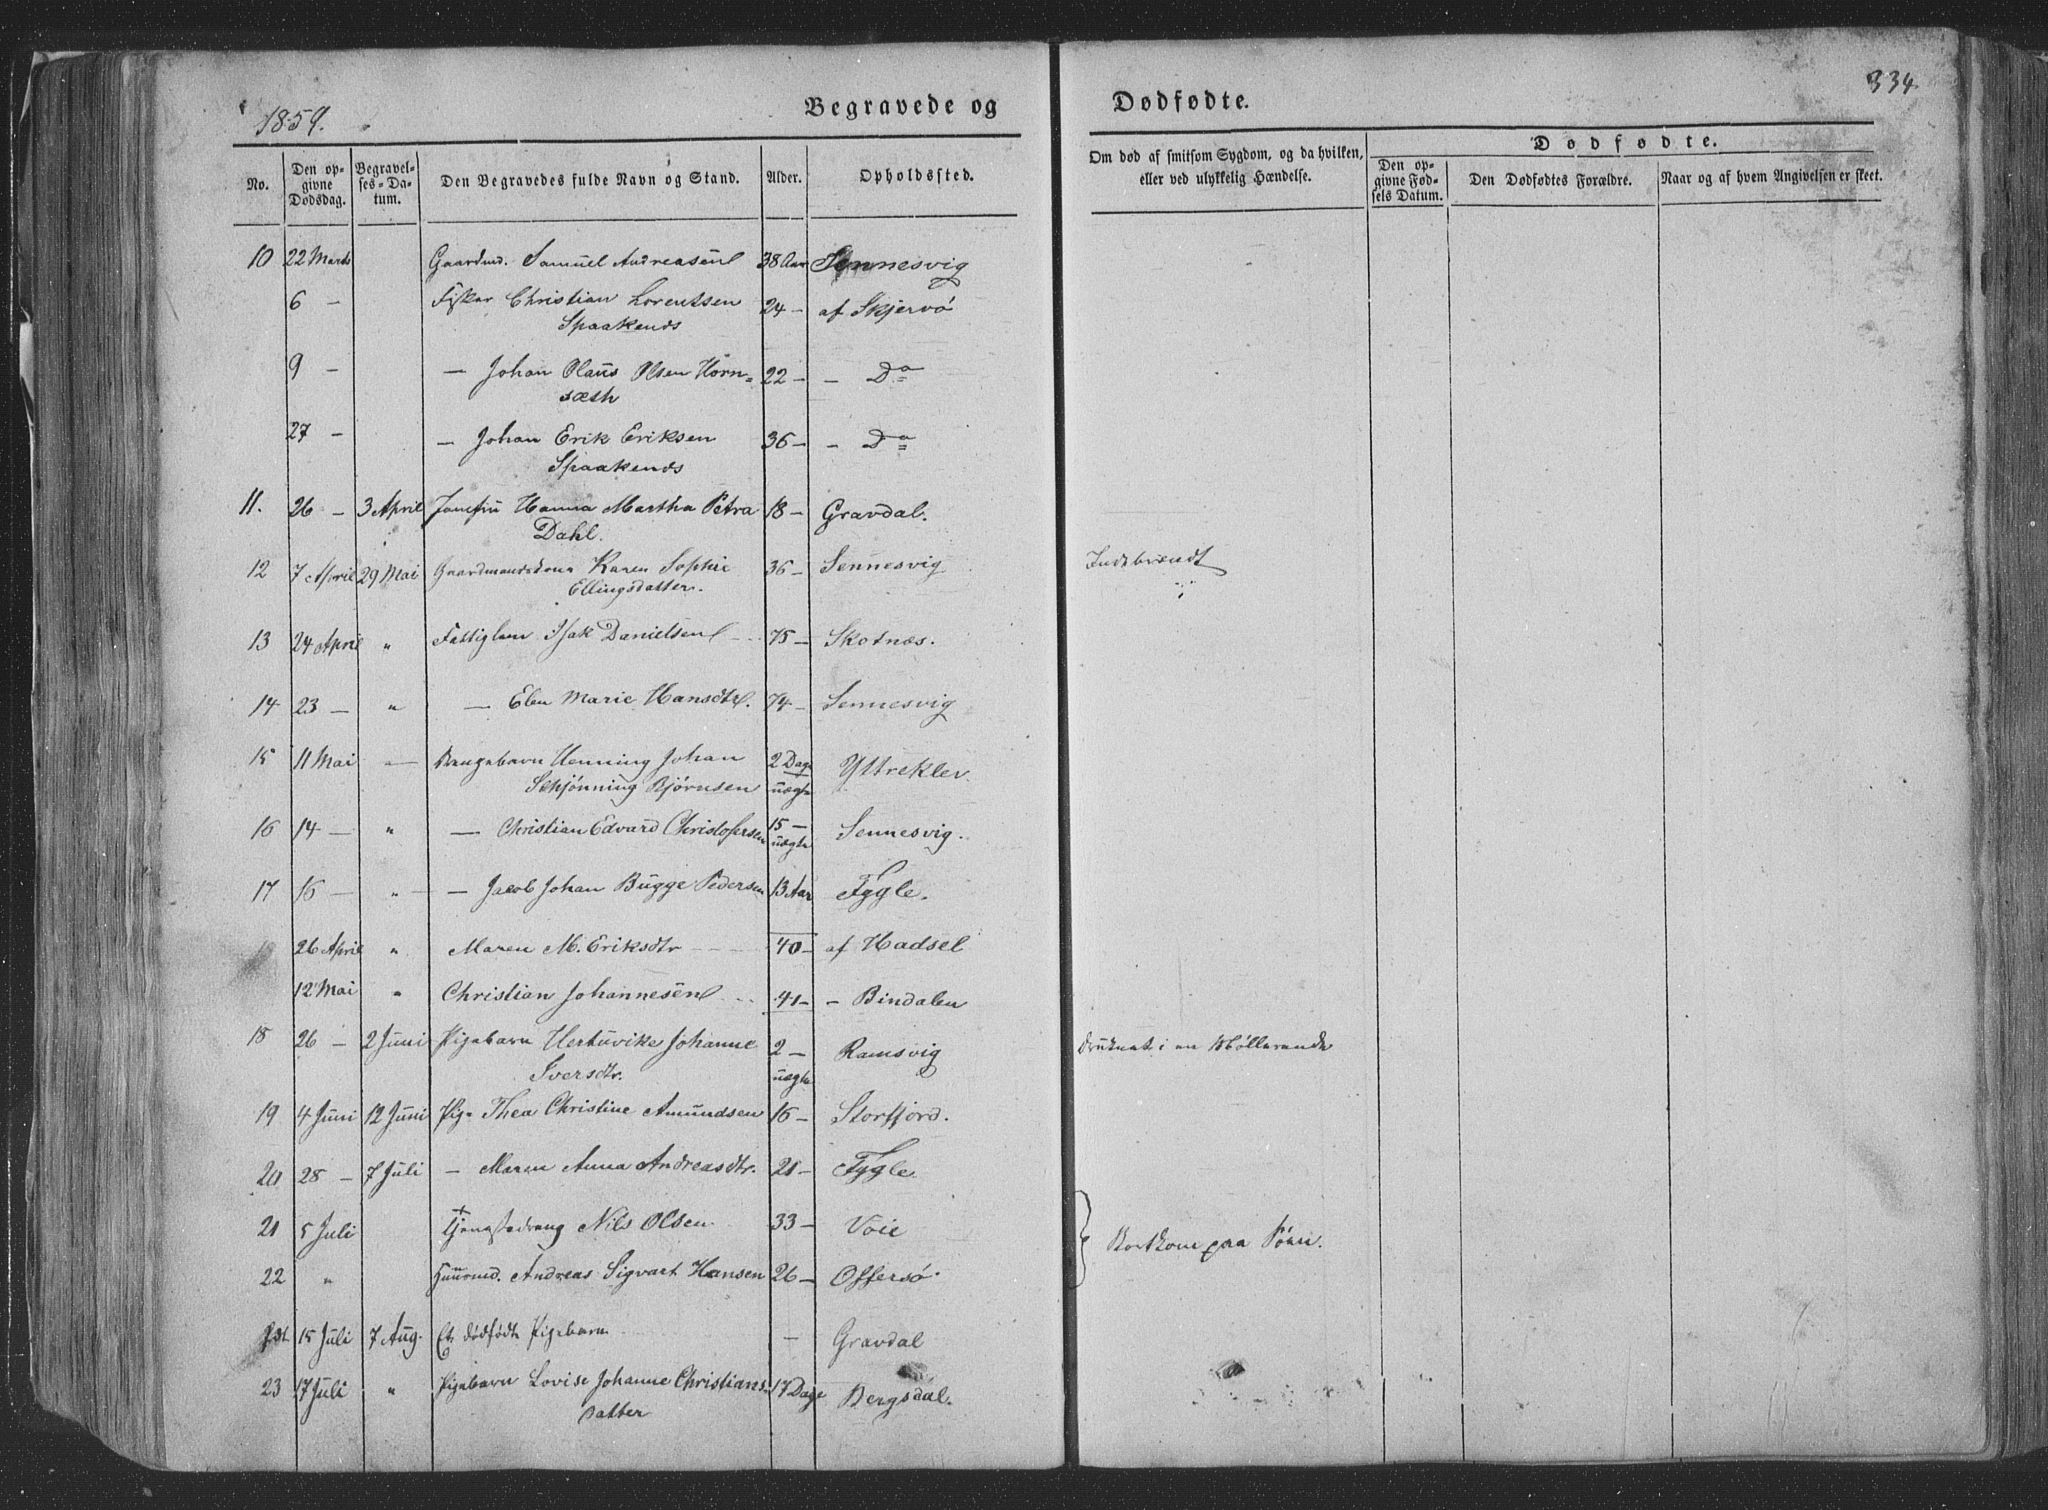 1859.
Begravede og Dødfødte.
334
No.
Den opgivne Dødsdag.
Begravelses-Datum.
Den Begravedes fulde Navn og Stand.
Alder.
Opholdssted.
Om død af smitsom Sygdom, og da hvilken, eller ved ulykkelig Hændelse.
Dødfødte.
Den opgivne Fødsels Datum.
Den Dødfødtes Forældre.
Naar og af hvem Angivelsen er skeet.
10 22 Marts Gaardmd. Samuel Andreasen 38 Aar Sennesvig
6 — Fisker Christian Lorentsen 24 — af Skjervö
Spaakends
9 — — Johan Olaus Olsen Horn= 22 — — Do
sæth
27 — — Johan Erik Eriksen 36 — — Do
Spaakends
11. 26 — 3 April Jomfru Hanna Martha Petra 18 — Gravdal.
Dahl.
12 7 April 29 Mai Gaardmandskona Karen Sophie 36 — Sennesvig Indebrændt
Ellingsdatter.
13 24 April " Fattiglem Isak Danielsen 75 — Skotnæs.
14 23 — " — Elen Marie Hansdtr. 74 — Sennesvig
15 11 Mai — Drengebarn Henning Johan 2 Dage Yttreklev.
Schjönning Bjørnsen uægte
16 14 — " — Christian Edvard Christofersen 15 — Sennesvig.
uægte
17 16 — " — Jacob Johan Bugge Pedersen 13 Aar Fygle.
26 April " Maren M. Eriksdtr 40 — af Hadsel
12 Mai " Christian Johannesen 41 — — Bindalen
18 26 — 2 Juni Pigebarn Hertuvike Johanne 2 — Ramsvig druknet i en
Iversdtr. uægte
19 4 Juni 12 Juni Pige Thea Christine Amundsen 16 — Storfjord.
20 28 — 7 Juli — Maren Anna Andreasdtr. 21 — Fygle.
21 5 Juli Tjenestedreng Nils Olsen. 33 — Voie
Bortkom paa Söen.
22 " Huusmd. Andreas Sigvart Hansen 26 — Offersö.
15 Juli 7 Aug. Et dödfödt Pigebarn — Gravdal
23 17 Juli " Pigebarn Lovise Johanne Christians- 17 Dage Bergsdal.
datter